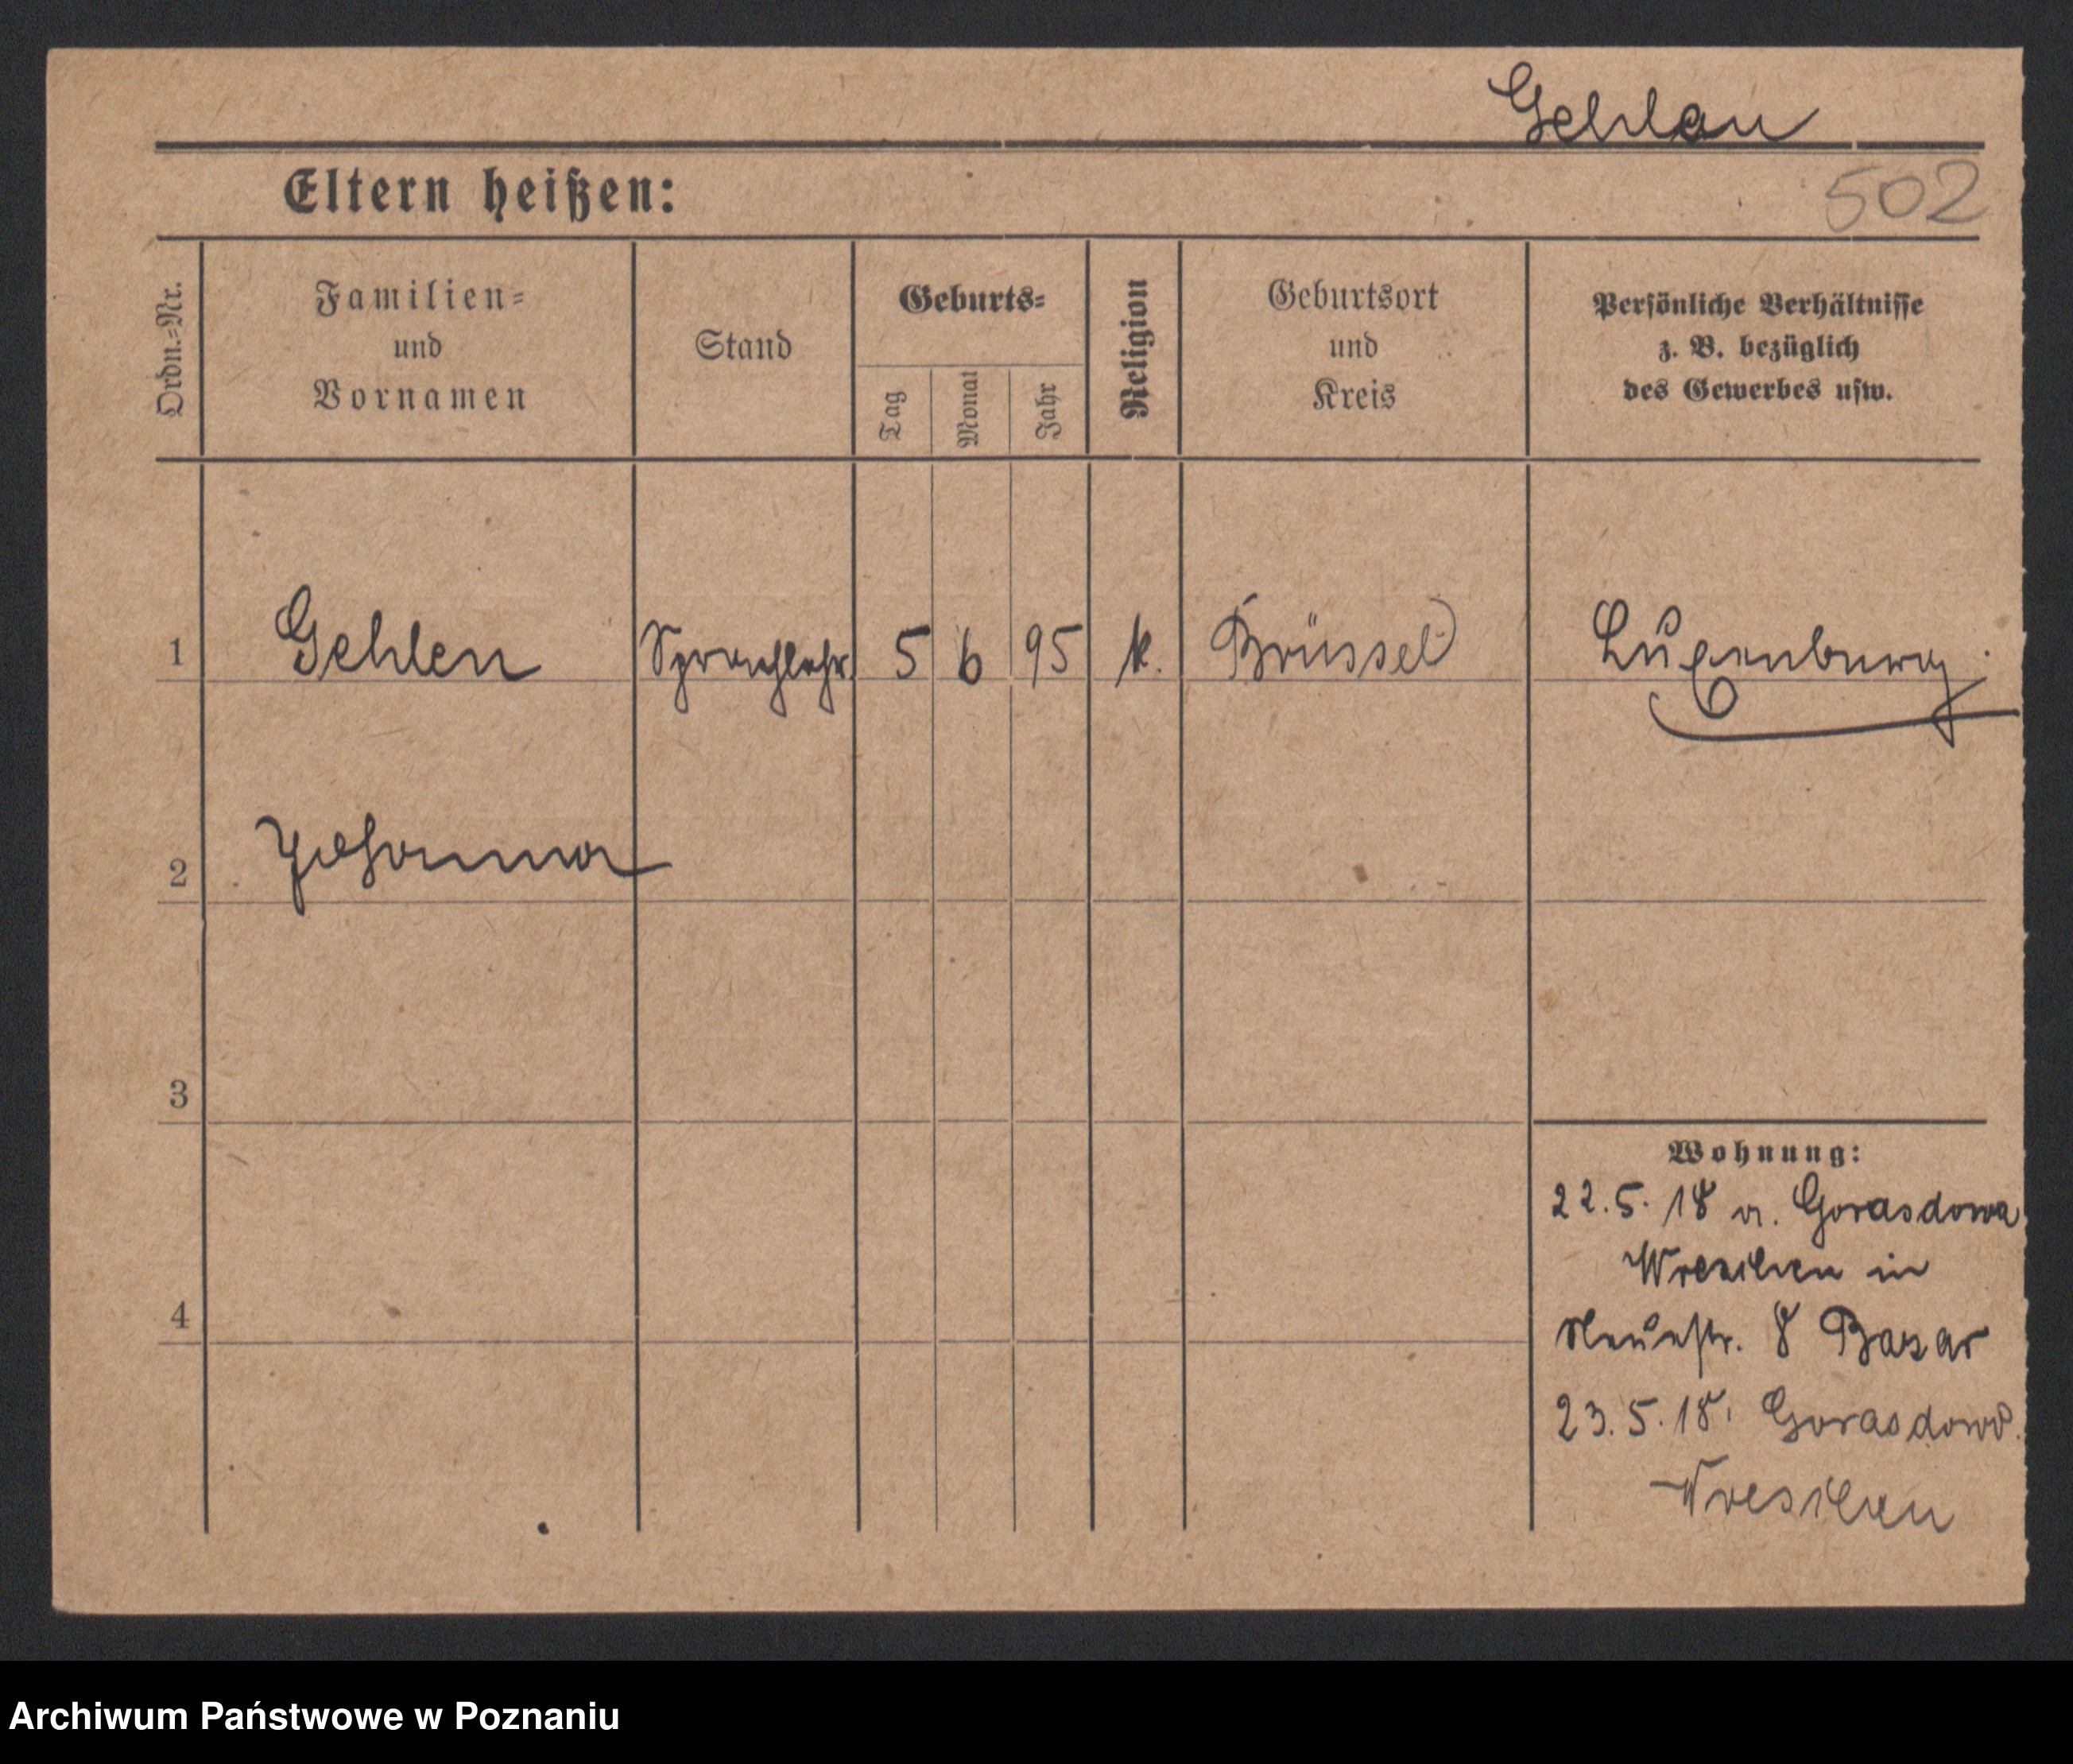 Gehlen
Eltern heißen:
502
Ordn.=Nr.
Familien=
und
Vornamen
Stand
Geburts=
Tag
Monat
Jahr
Religion
Geburtsort
und
Kreis
Persönliche Verhältnisse
z. B. bezüglich
des Gewerbes usw.
1 Gehlen Sprachlehr. 5 6 95 k. Brüssel Luxemburg.
2 Johanna
3
Wohnung:
22.5.18 v. Gorasdowo
Wreschen in
4
Neuestr. 8 Bazar
23.5.18. Gorasdowo
Wreschen
Archiwum Państwowe w Poznaniu